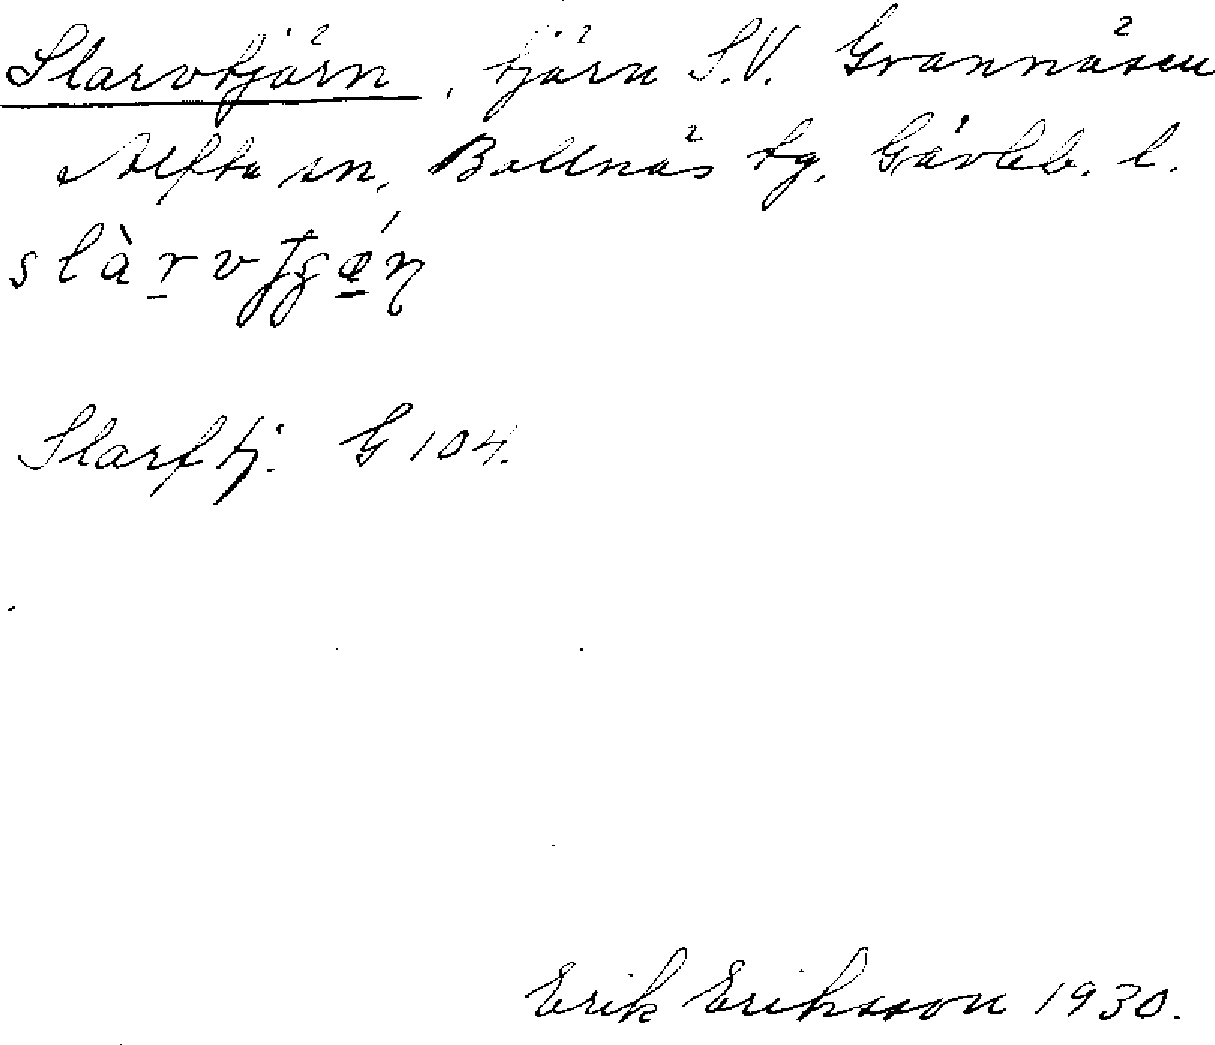 Slarvtjärn, tjärn S.V. Grannäsen
Alfta sn, Bollnäs tg, Gävleb. l.
Slarftj. G 104.
Erik Eriksson 1930.